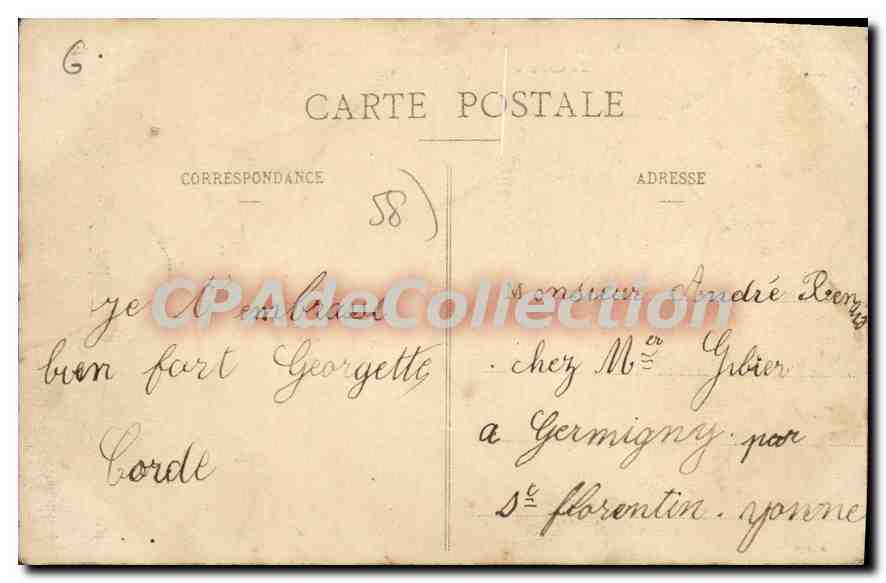 6.
CARTE POSTALE
CORRESPONDANCE
58)
je t'embrasse
bien fort Georgette
Corde
ADRESSE
Monsieur André
chez Mer Gibier
a Germigny. par
St florentin. yonne
CPAdeCollection.com